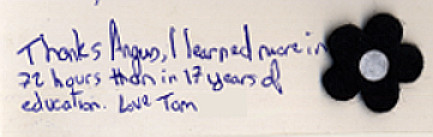 Thanks Angus, I learned more in
72 hours than in 17 years of
education. Love Tom